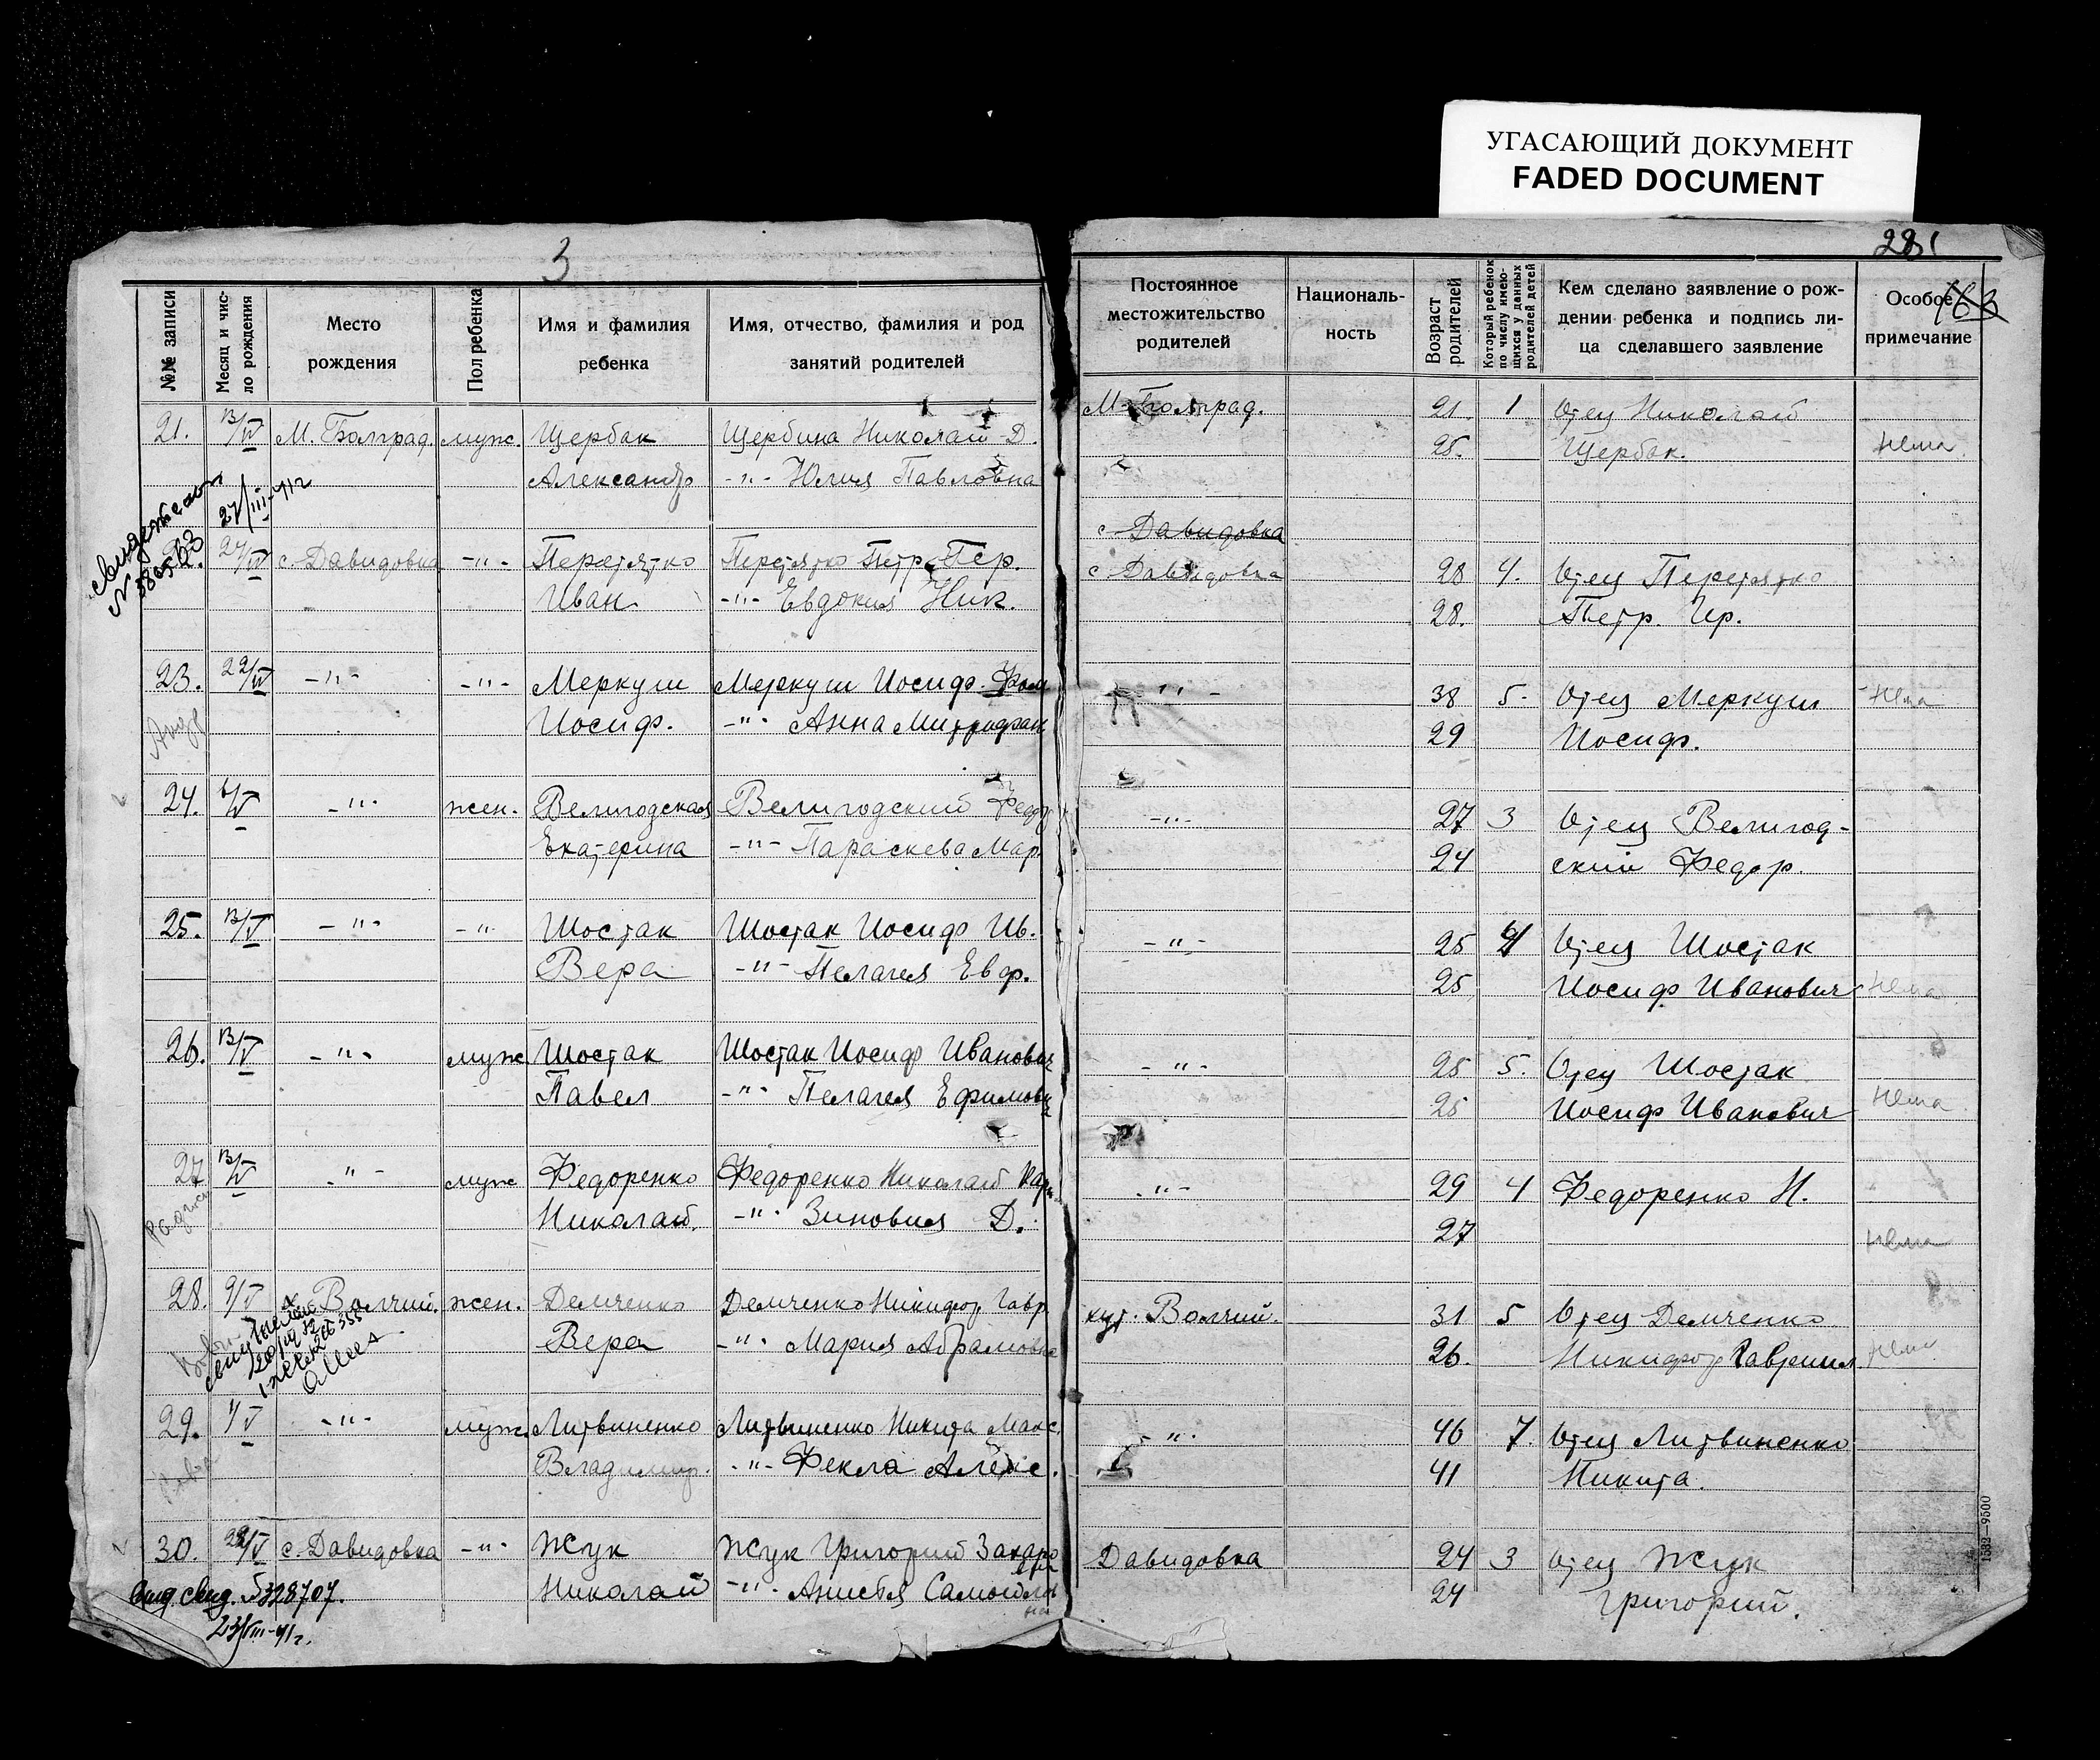 УГАСАЮЩИЙ ДОКУМЕНТ
FADED DOCUMENT
3
281
163
№№ записи
Месяц и чис-
ло рождения
Место
рождения
Пол ребенка
Имя и фамилия
ребенка
Имя, отчество, фамилия и род
занятий родителей
Постоянное
местожительство
родителей
Националь-
ность
Возраст
родителей
Который ребенок
по числу имею-
щихся у данных
родителей детей
Кем сделано заявление о рож-
дении ребенка и подпись ли-
ца сделавшего заявление
Особое
примечание
21. 13/IV М. Болград. муж. Щербак Щербина Николай Д. М. Болград. 21. 1 Отец Николай
Александр -"- Юлия Павловна 25. Щербак. Нема
27/III-41г
с Давидовка
24/IV с. Давидовка -"- Перетятко Перетятко Петр Гр. с Давидовка 28 4. Отец Перетятко
Иван -"- Евдокия Ник. 28. Петр. Гр.
23. 22/IV -"- -"- Меркуш Меркуш Иосиф. Фом -"- 38 5. Отец Меркуш Нема
Иосиф. -"- Анна Митрофан 29 Иосиф.
24. 6/V -"- жен. Велигодская Велигодский Федор -"- 27 3 Отец Велигод-
Екатерина -"- Параскева Мар. 24 ский Федор.
25. 13/V -"- -"- Шостак Шостак Иосиф Ив. -"- 25 4 Отец Шостак
Вера -"- Пелагея Евф. 25 Иосиф Иванович Нема
26. 13/V -"- муж Шостак Шостак Иосиф Иванович -"- 25 5. Отец Шостак
Павел -"- Пелагея Ефимовн 25 Иосиф Иванович Нема
27 13/IV -"- муж Федоренко Федоренко Николай Карп -"- 29 4 Федоренко Н.
Николай. -"- Зиновия Д. 27 Нема
28. 9/V х Волчий. жен. Демченко Демченко Никифор Гавр хут. Волчий. 31 5 Отец Демченко
Вера -"- Мария Абрамовна 26. Никифор Гавриил Нема
29. 1/V -"- муж. Литвиненко Литвиненко Никита Макс. -"- 46 7. Отец Литвиненко
Владимир. -"- Фекла Алекс. 41 Никита.
30. 22/V с. Давидовка -"- Жук Жук Григорий Захаро Давидовка 24 3 Отец Жук
Николай -"- Анисья Самойлов 24 Григорий.
на
выд свид. №328707.
23/VIII-41г.
1583—9500